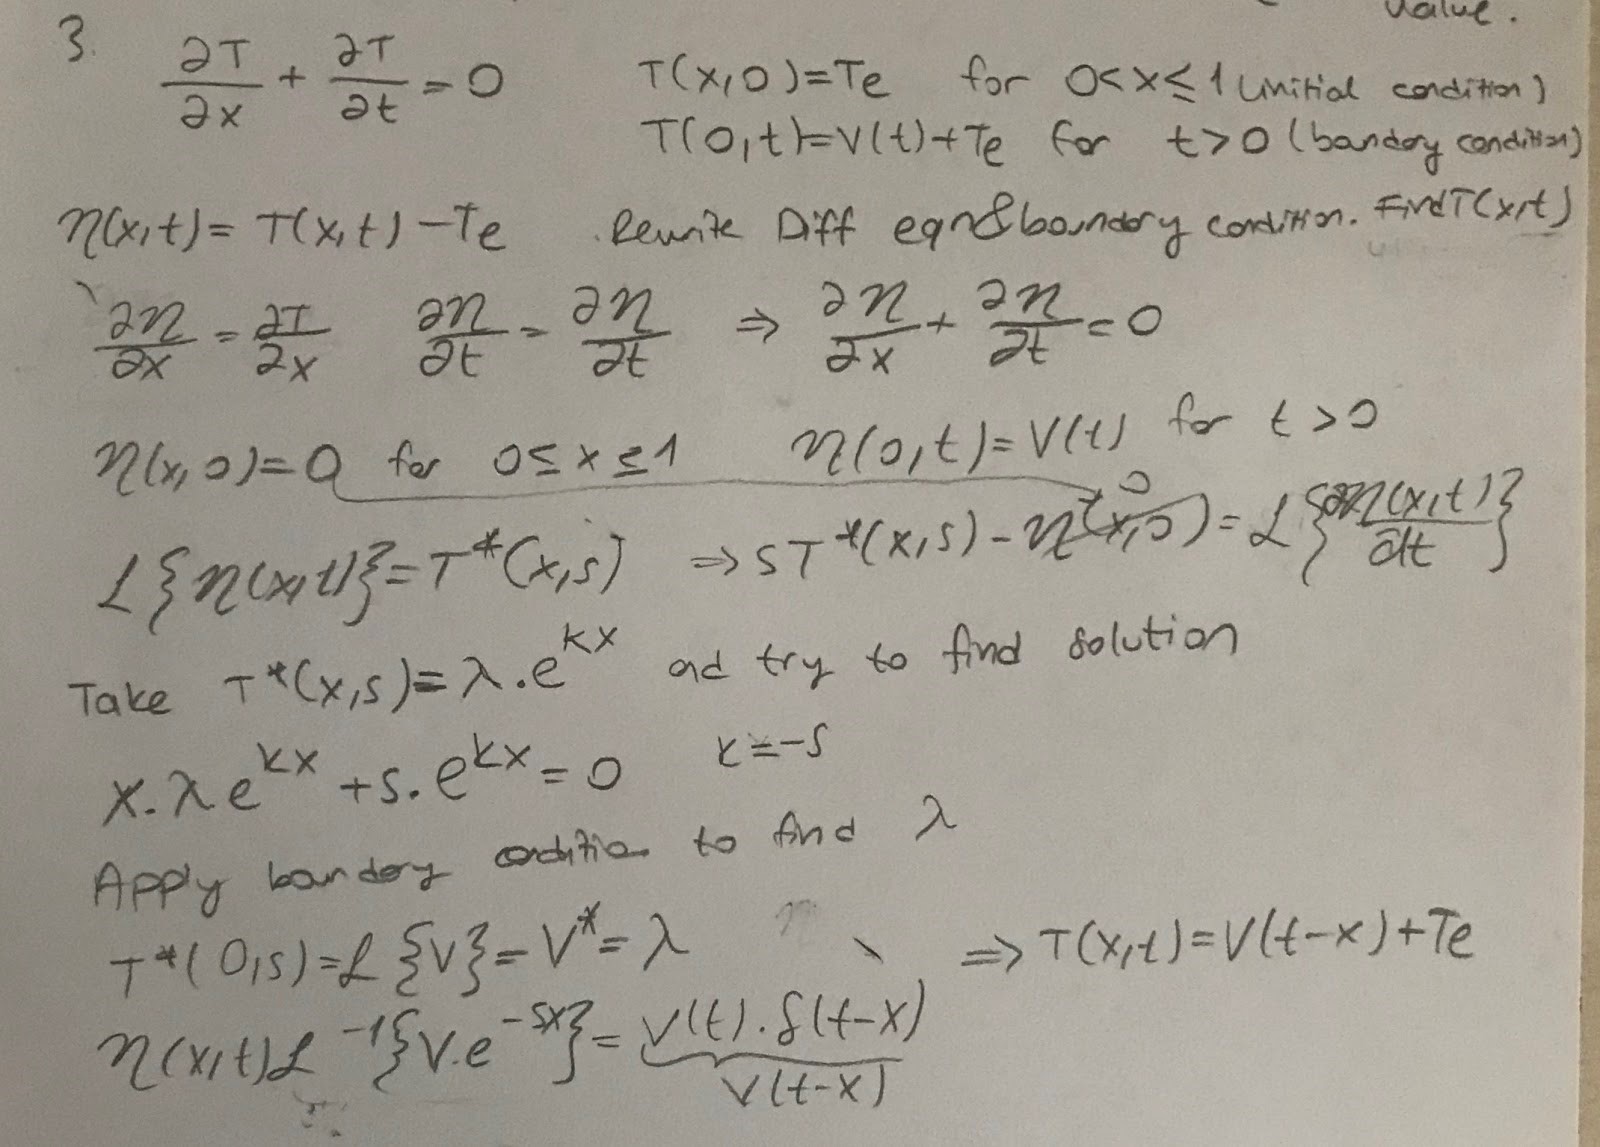 value.
3. ∂T/∂x + ∂T/∂t = 0 T(x,0)=Te for 0<x≤1 (initial condition)
T(0,t)=V(t)+Te for t>0 (bandory condition)
η(x,t)= T(x,t) -Te Rewrite Diff eqn&boundory condition. Find T(x,t)
∂η/∂x = ∂T/∂x ∂η/∂t = ∂η/∂t ⇒ ∂η/∂x + ∂η/∂t = 0
η(x,0)=0 for 0≤x≤1 η(0,t)=V(t) for t>0
L{η(x,t)}=T*(x,s) ⇒ sT*(x,s) - η(x,0) = L{∂η(x,t)/dt}
0
Take T*(x,s)= λ.e^kx ad try to find solution
x.λe^kx +s.e^kx = 0 k=-s
Apply boundory condition to find λ
T*(0,s)=L{V}=V*=λ ⇒ T(x,t)=V(t-x)+Te
η(x,t)L^-1{V.e^-sx}= V(t).δ(t-x)
V(t-x)